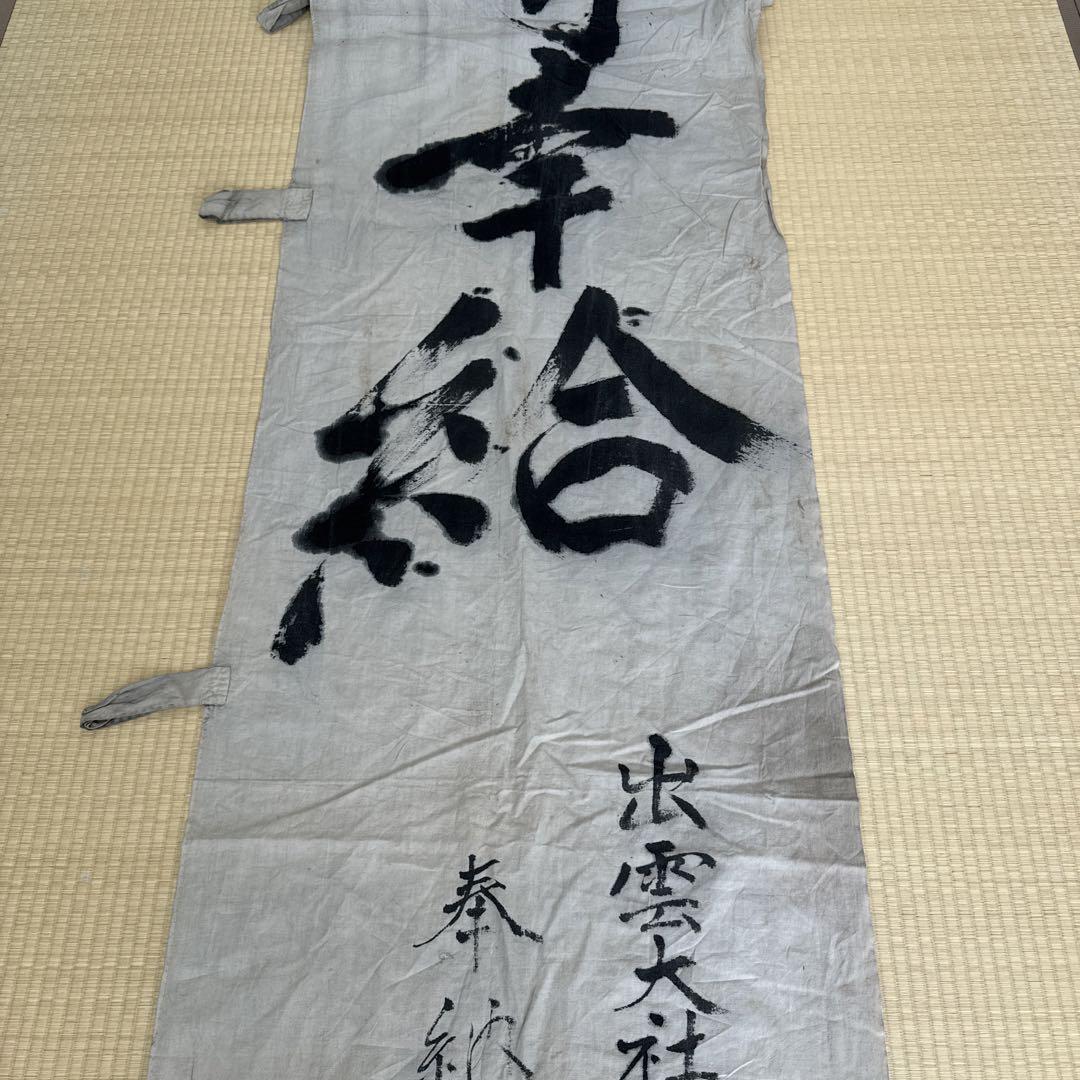 幸給
出雲大社
奉納